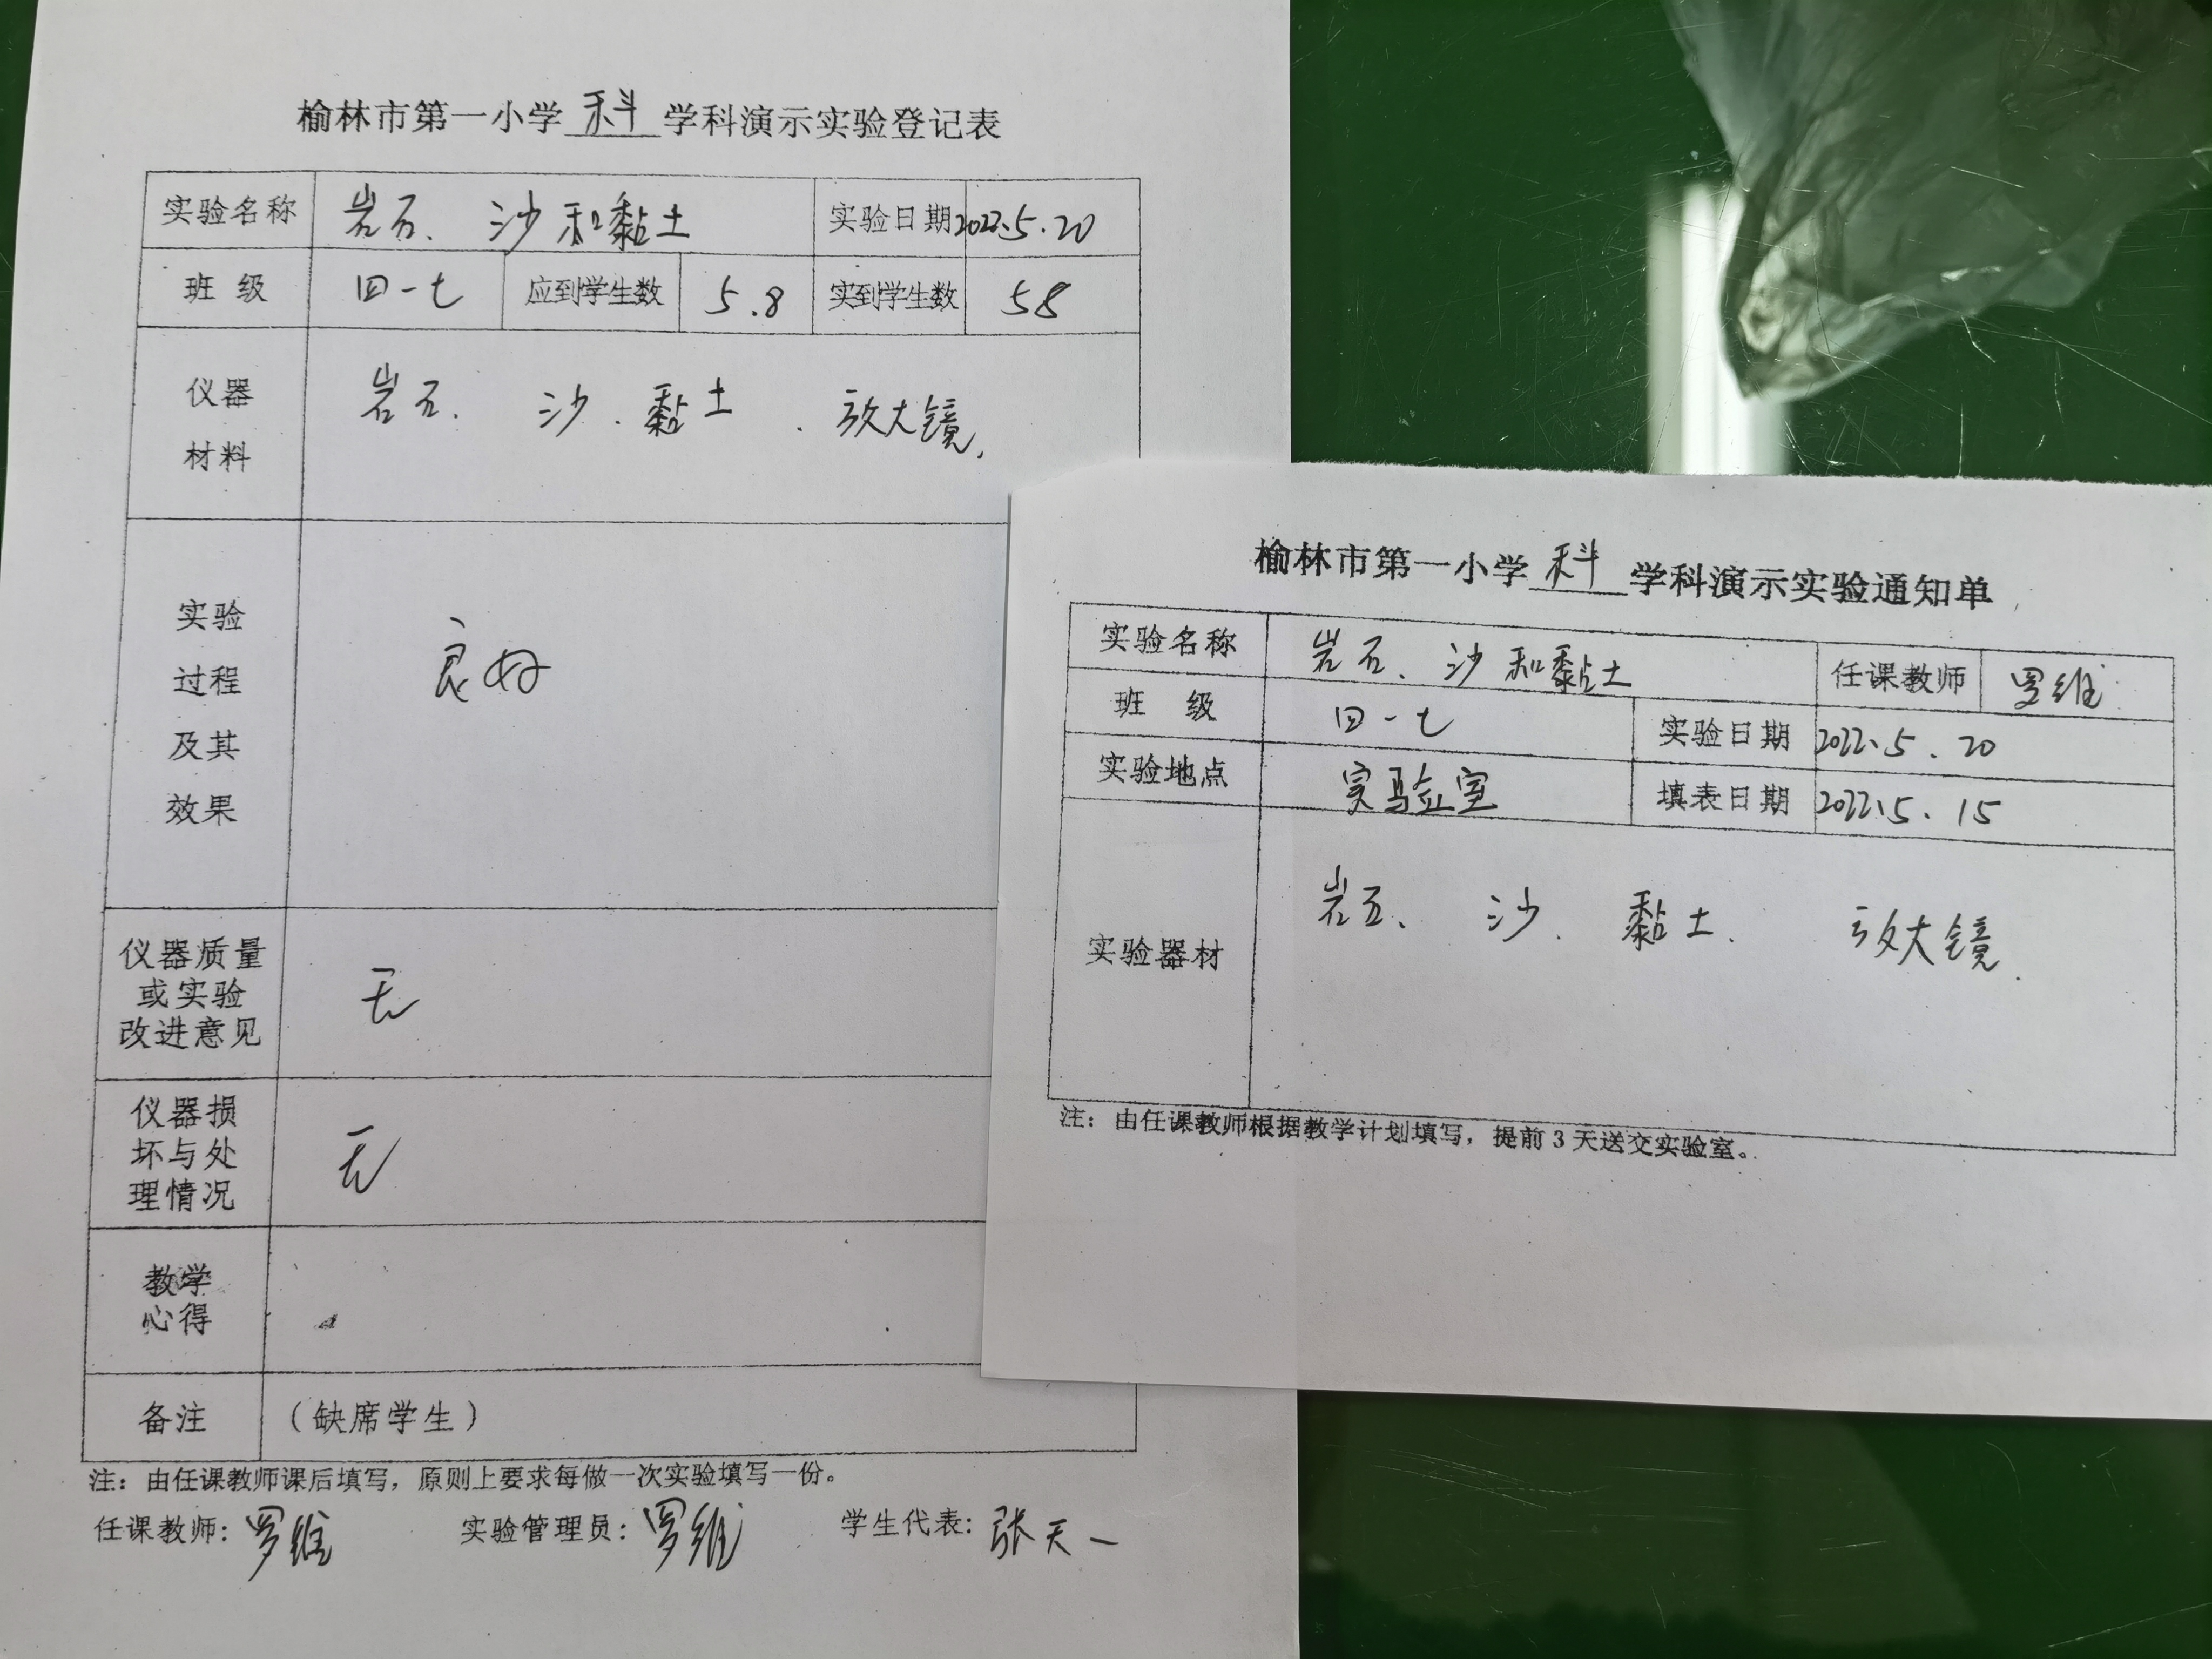 榆林市第一小学 科 学科演示实验登记表
实验名称 岩石、沙和黏土 实验日期 2022.5.20
班 级 四-七 应到学生数 5.8 实到学生数 58
仪器
材料
岩石、沙、黏土、放大镜、
实验
过程
及其
效果
良好
仪器质量
或实验
改进意见
无
仪器损
坏与处
理情况
无
教学
心得
备注 （缺席学生）
注：由任课教师课后填写，原则上要求每做一次实验填写一份。
任课教师：罗维 实验管理员：罗维 学生代表：张天一
榆林市第一小学 科 学科演示实验通知单
实验名称 岩石、沙和黏土 任课教师 罗维
班 级 四-七 实验日期 2022.5.20
实验地点 实验室 填表日期 2022.5.15
实验器材 岩石、沙、黏土、放大镜、
注：由任课教师根据教学计划填写，提前3天送交实验室。